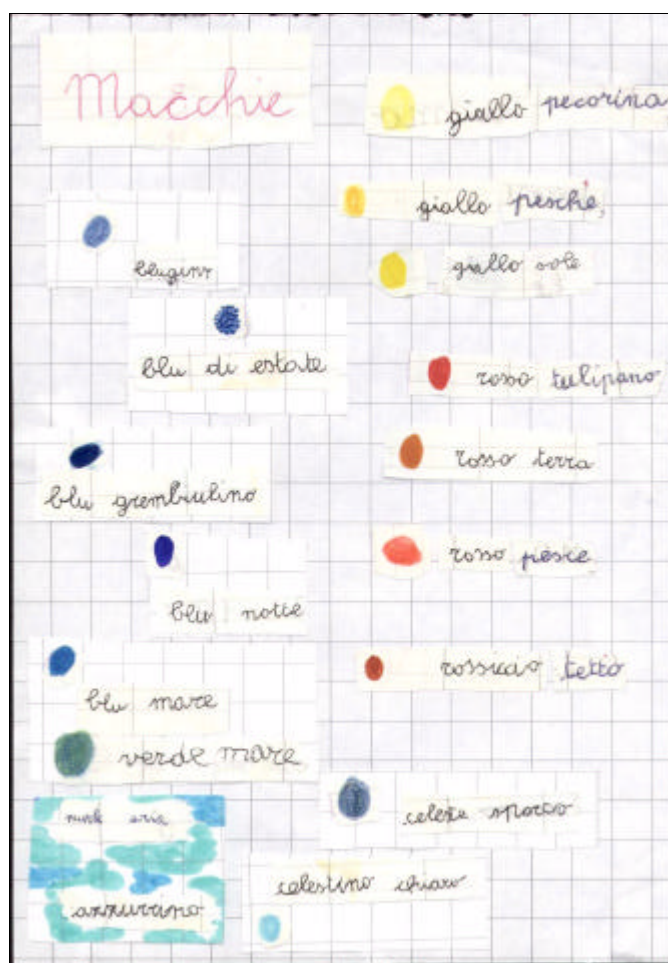 Macchie
blugins
blu di estate
blu grembiulino
blu notte
blu mare
verde mare
aria
azzurrino
giallo pecorina
giallo pesche
giallo sole
rosso tulipano
rosso terra
rosso pesce
rossiccio tetto
celeste sporco
celestino chiaro